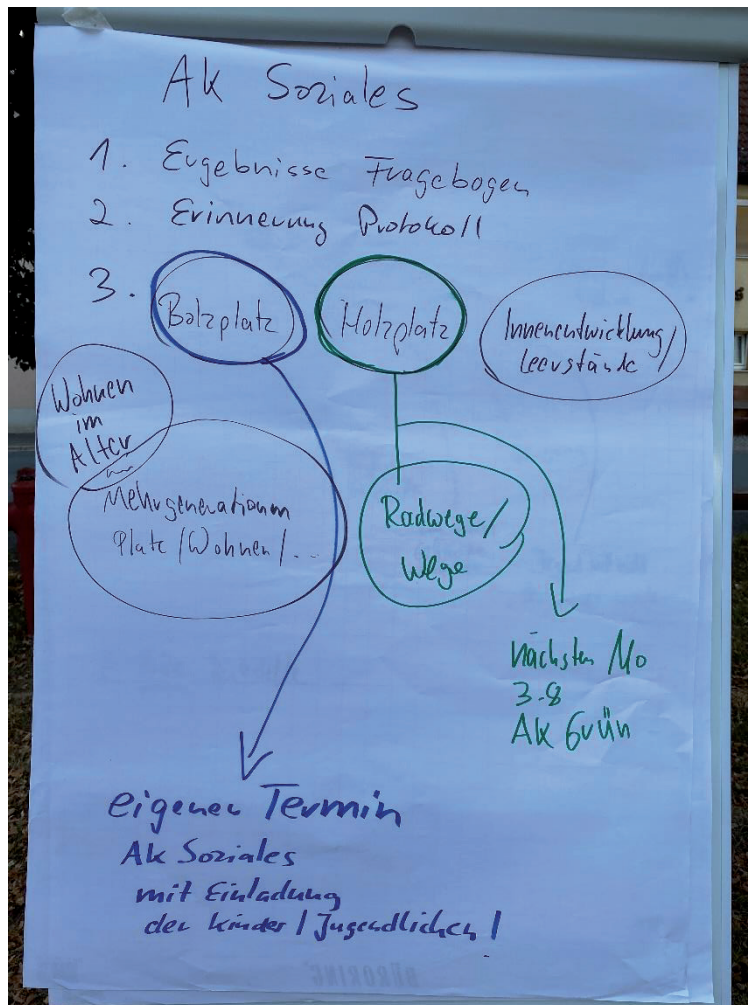 AK Soziales
1. Ergebnisse Fragebogen
2. Erinnerung Protokoll
3.
Bolzplatz
Holzplatz
Innenentwicklung/
Leerstände
Wohnen
im
Alter
Mehrgenerationen
Platz/Wohnen/...
Radwege/
Wege
nächsten Mo
3.8
AK Grün
eigener Termin
AK Soziales
mit Einladung
der Kinder/Jugendlichen!
BÜRORING